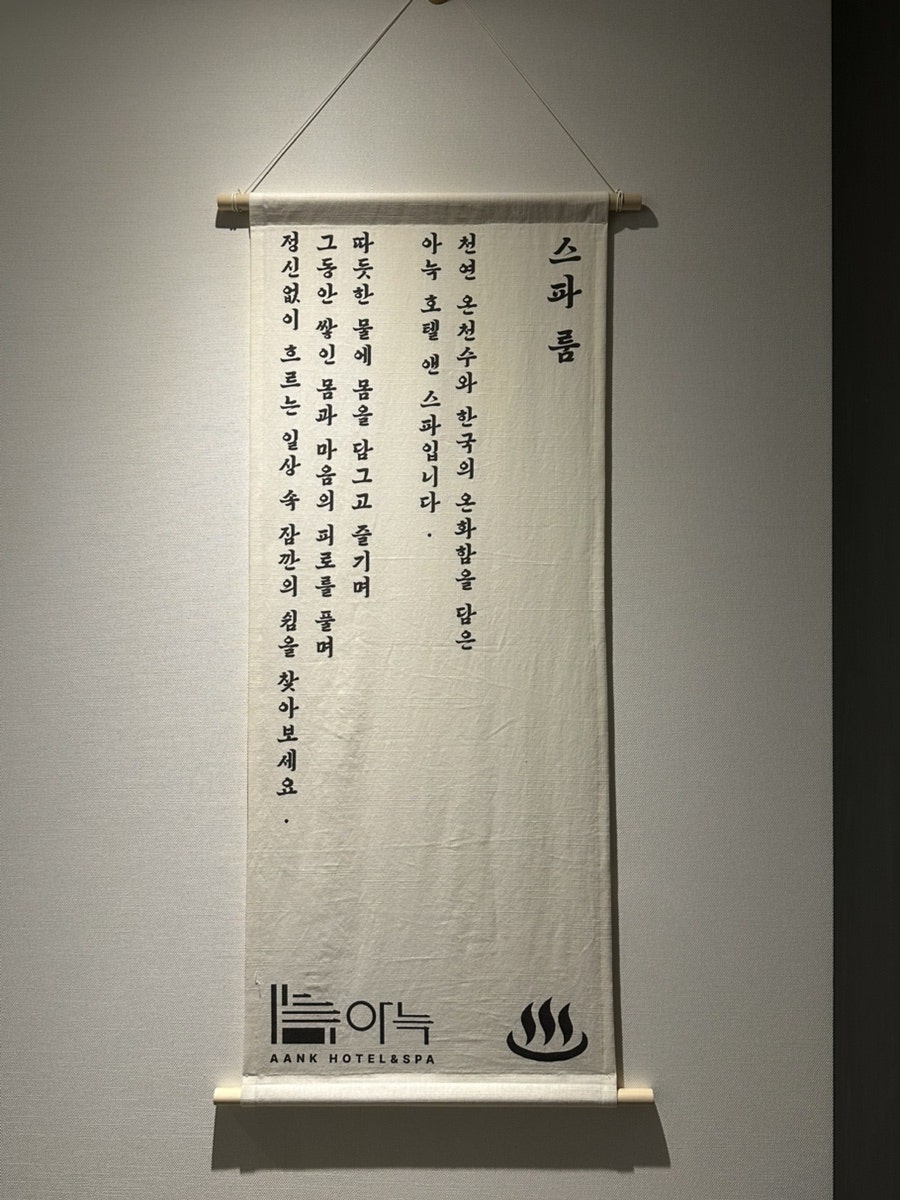 스파 룸
천연 온천수와 한국의 온화함을 담은
아늑 호텔 앤 스파입니다.
따듯한 물에 몸을 담그고 즐기며
그동안 쌓인 몸과 마음의 피로를 풀며
정신없이 흐르는 일상 속 잠깐의 쉼을 찾아보세요.
아늑
AANK HOTEL&SPA